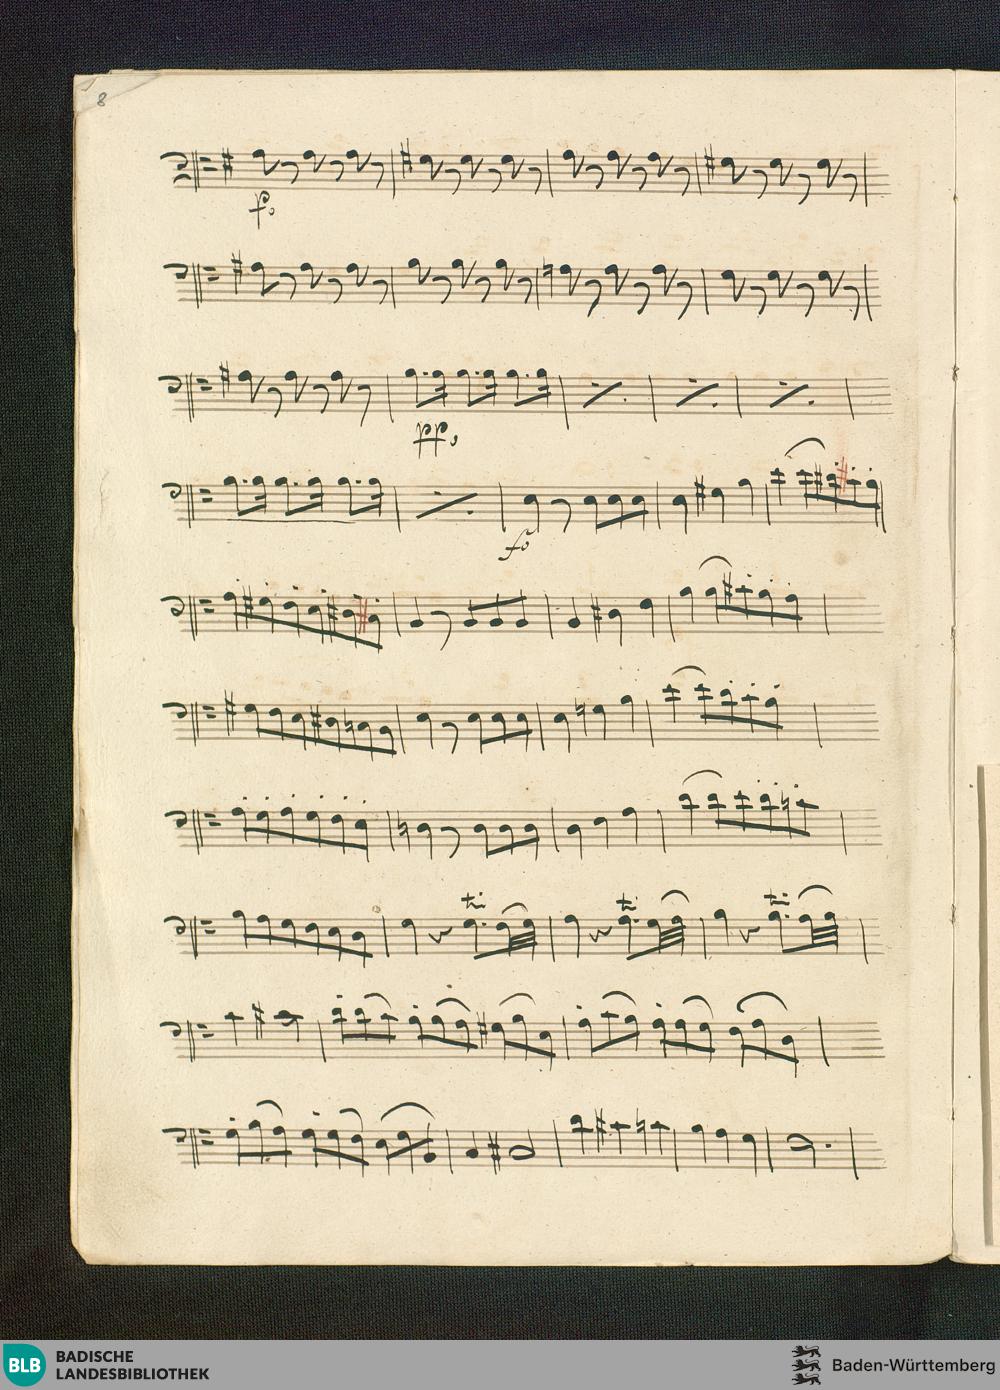 8
p.
pp.
fo
tr tr tr
BLB
BADISCHE
LANDESBIBLIOTHEK
Baden-Württemberg